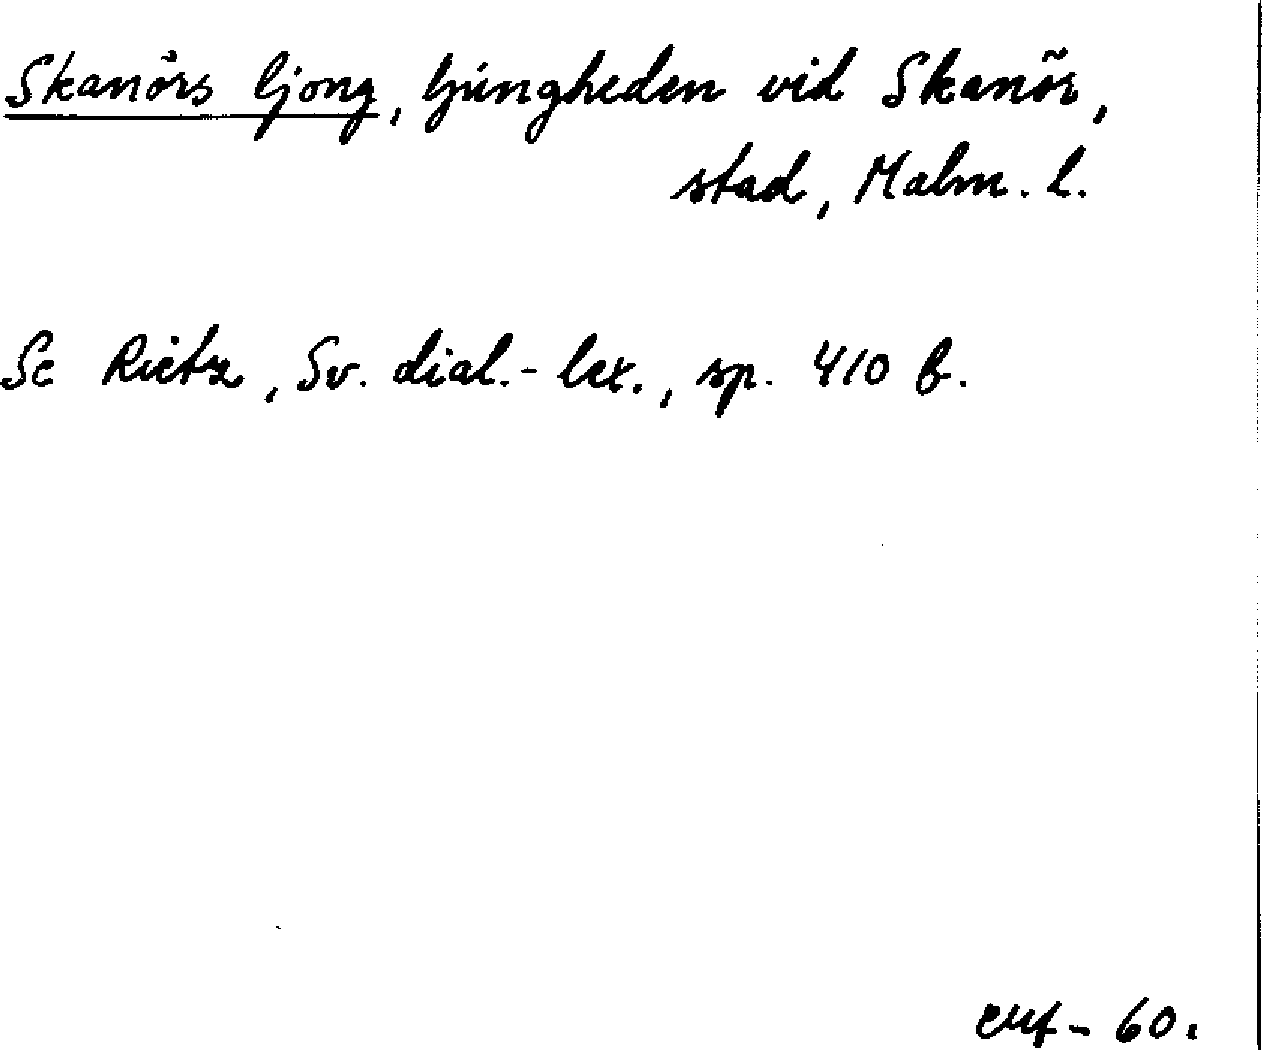 Skanörs ljong, ljungheden vid Skanör,
stad, Malm. l.
Se Rietz, Sv. dial.-lex., sp. 410 b.
- 60.